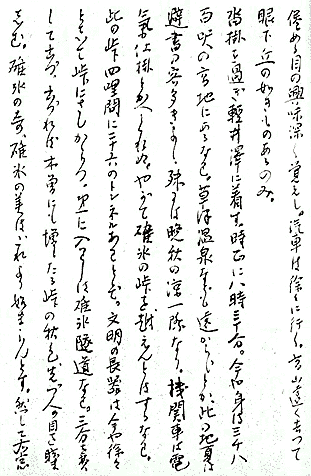 眺める目の興味深く覚えし。汽車は徐々に行く、高山遠く去つて
眼下丘の如きものあるのみ。
沓掛を過ぎ軽井澤に着す。時正に八時三十分。今や身は三千八
百呎の高地にあるなり。草津温泉なども遠からじとか、此の地夏は
避暑の客多きよし、殊に晩秋の涼一際なり。機関車は電
氣仕掛と変へられぬ。やがて碓氷の峠を越えんとはするなり。
此の峠四哩間に二十六のトンネルありとぞ。文明の長蛇は今や徐々
として峠にさしかかりつ。更に入りしは碓氷隧道なり。三分五分
して出づ。出づれば木曽にも増したる峠の秋色先づ人の目を驚
します。碓氷の奇、碓氷の美はいかで如きあらんとす。然して右窓